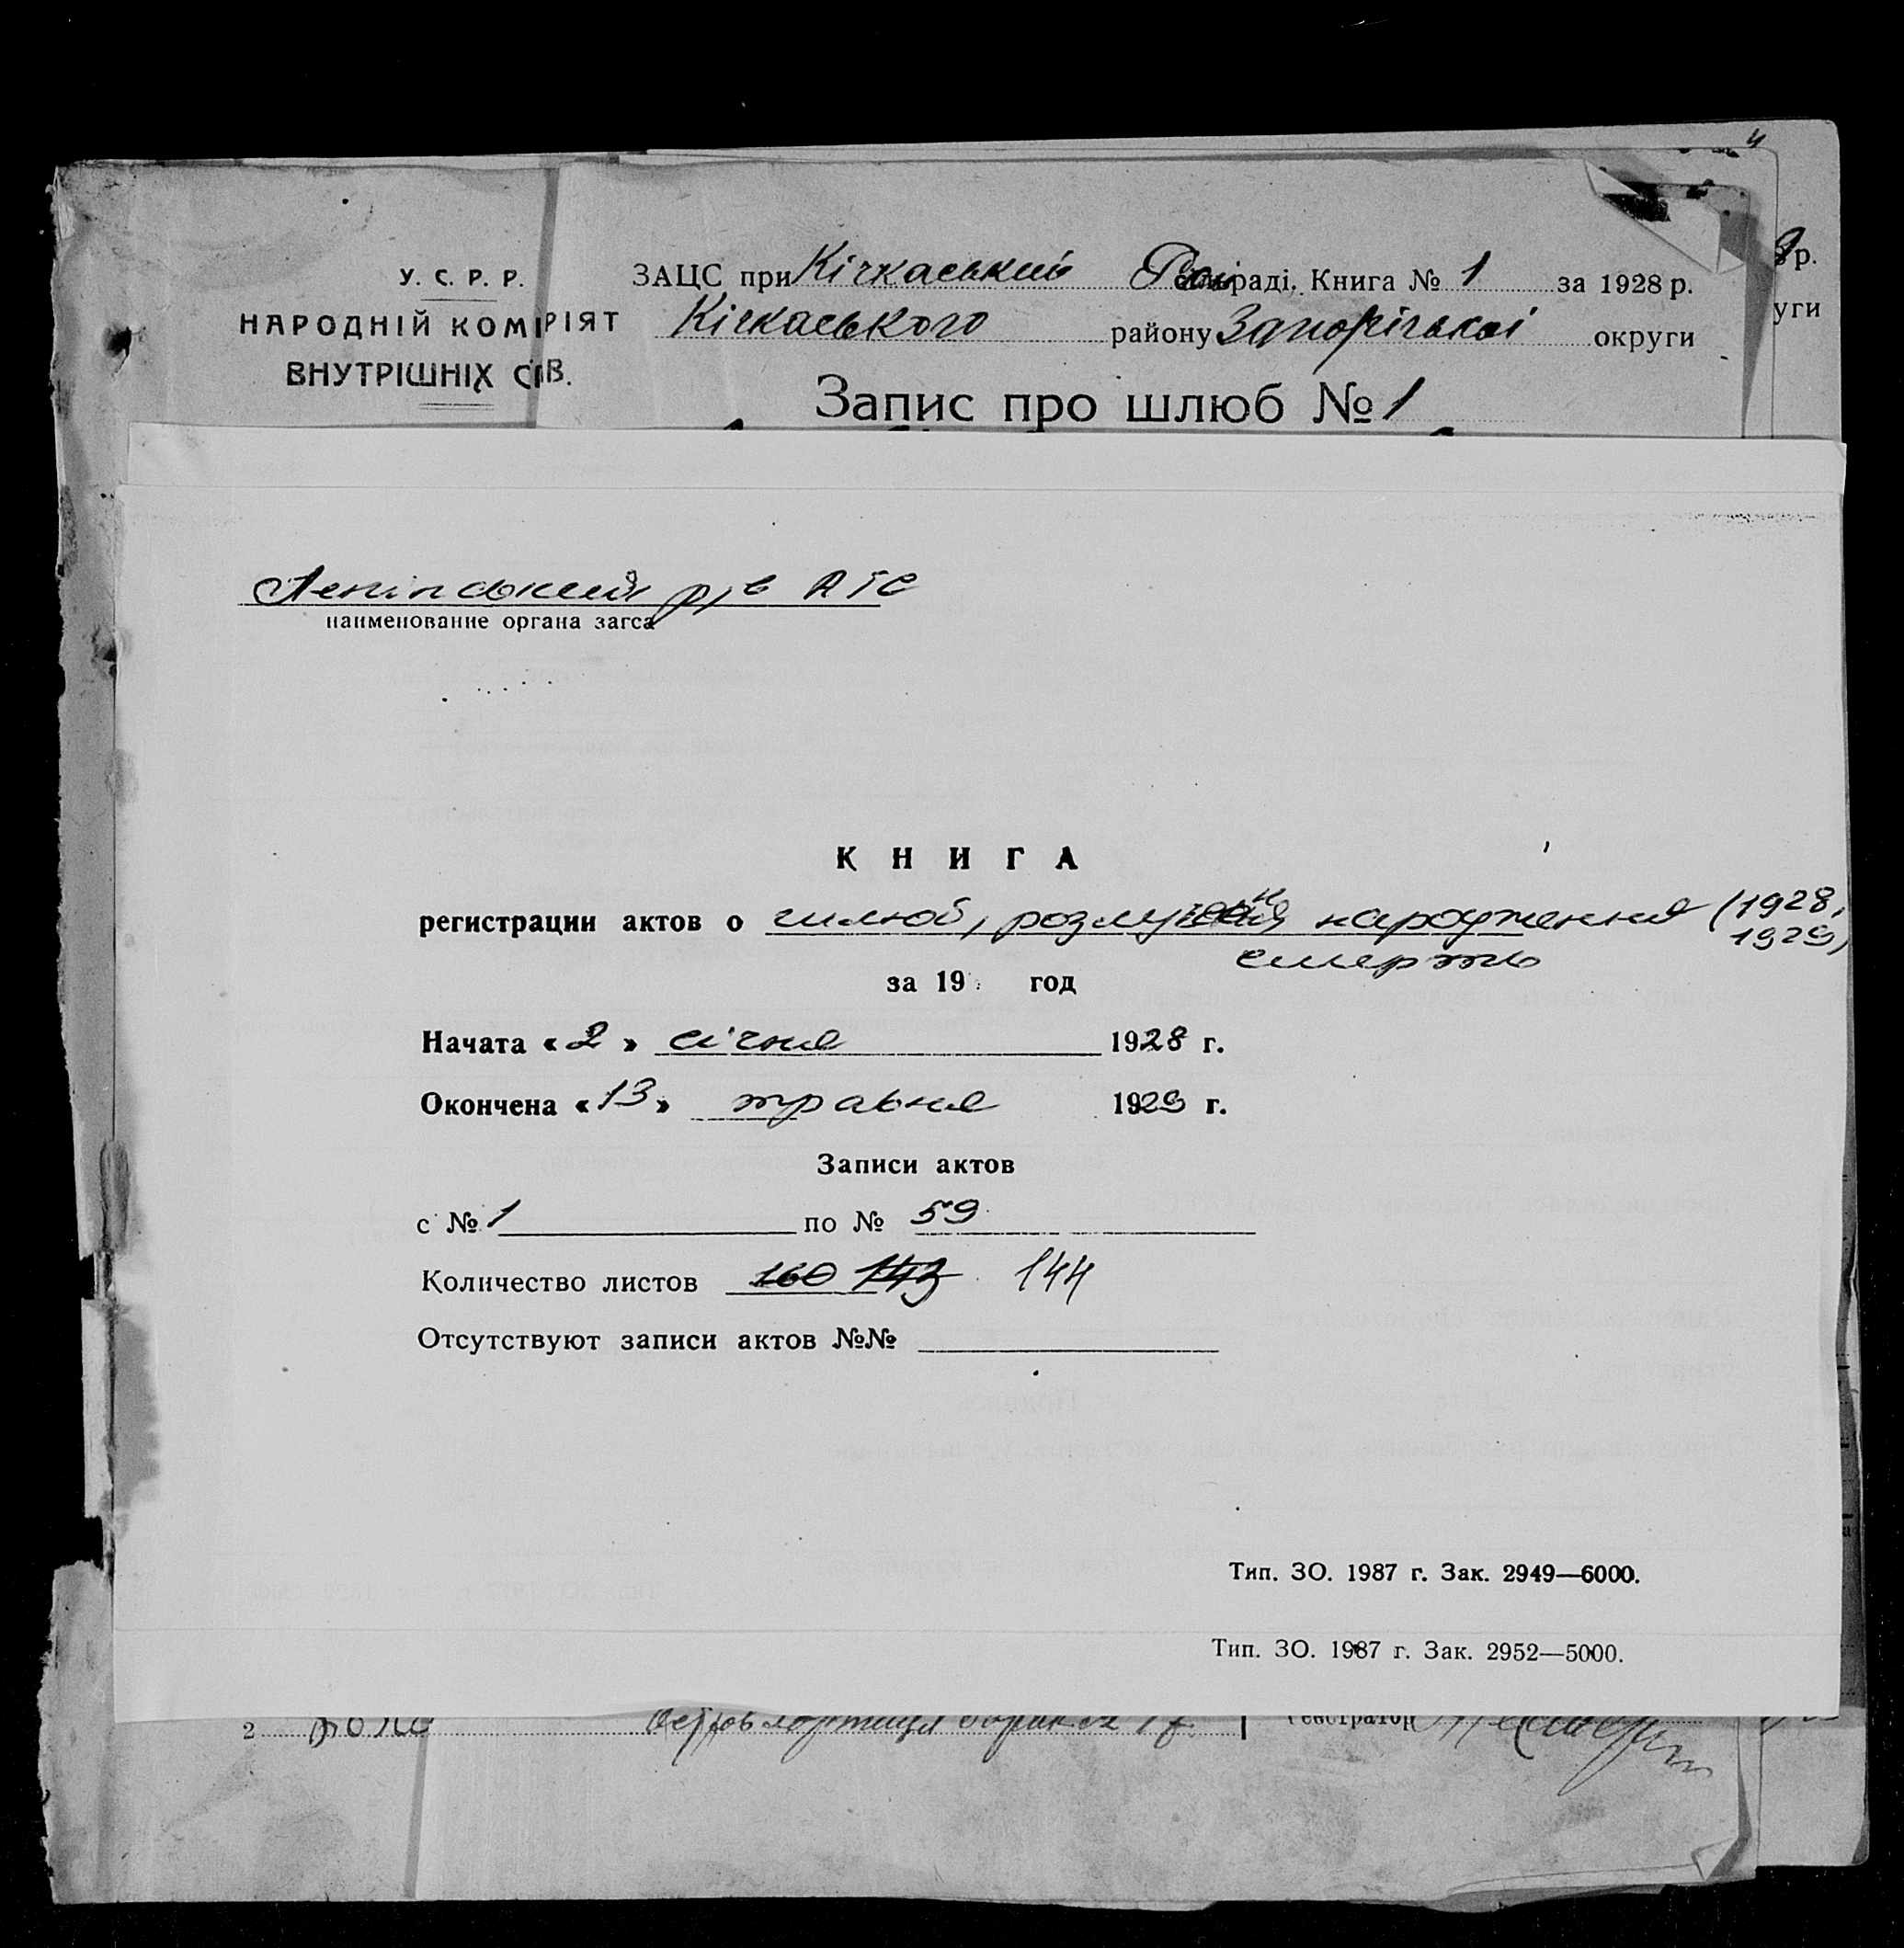 У. С. Р. Р.
НАРОДНІЙ КОМІРІЯТ
ВНУТРІШНІХ СПВ.
ЗАЦС при Кічкаський Рай раді. Книга № 1 за 1928 р.
Кічкаського району Запорізької округи
Запис про шлюб № 1
р.
уги
Ленінський р/в АГС
наименование органа загса
КНИГА
регистрации актов о шлюб, розлучення народження (1928, 1929)
смерть
за 19 год
Начата «2» січня 1928 г.
Окончена «13» травня 1929 г.
Записи актов
с № 1 по № 59
Количество листов 160 143 144
Отсутствуют записи актов №№
Тип. ЗО. 1987 г. Зак. 2949—6000.
Тип. ЗО. 1987 г. Зак. 2952—5000.
2 Остров Хортиця барак №